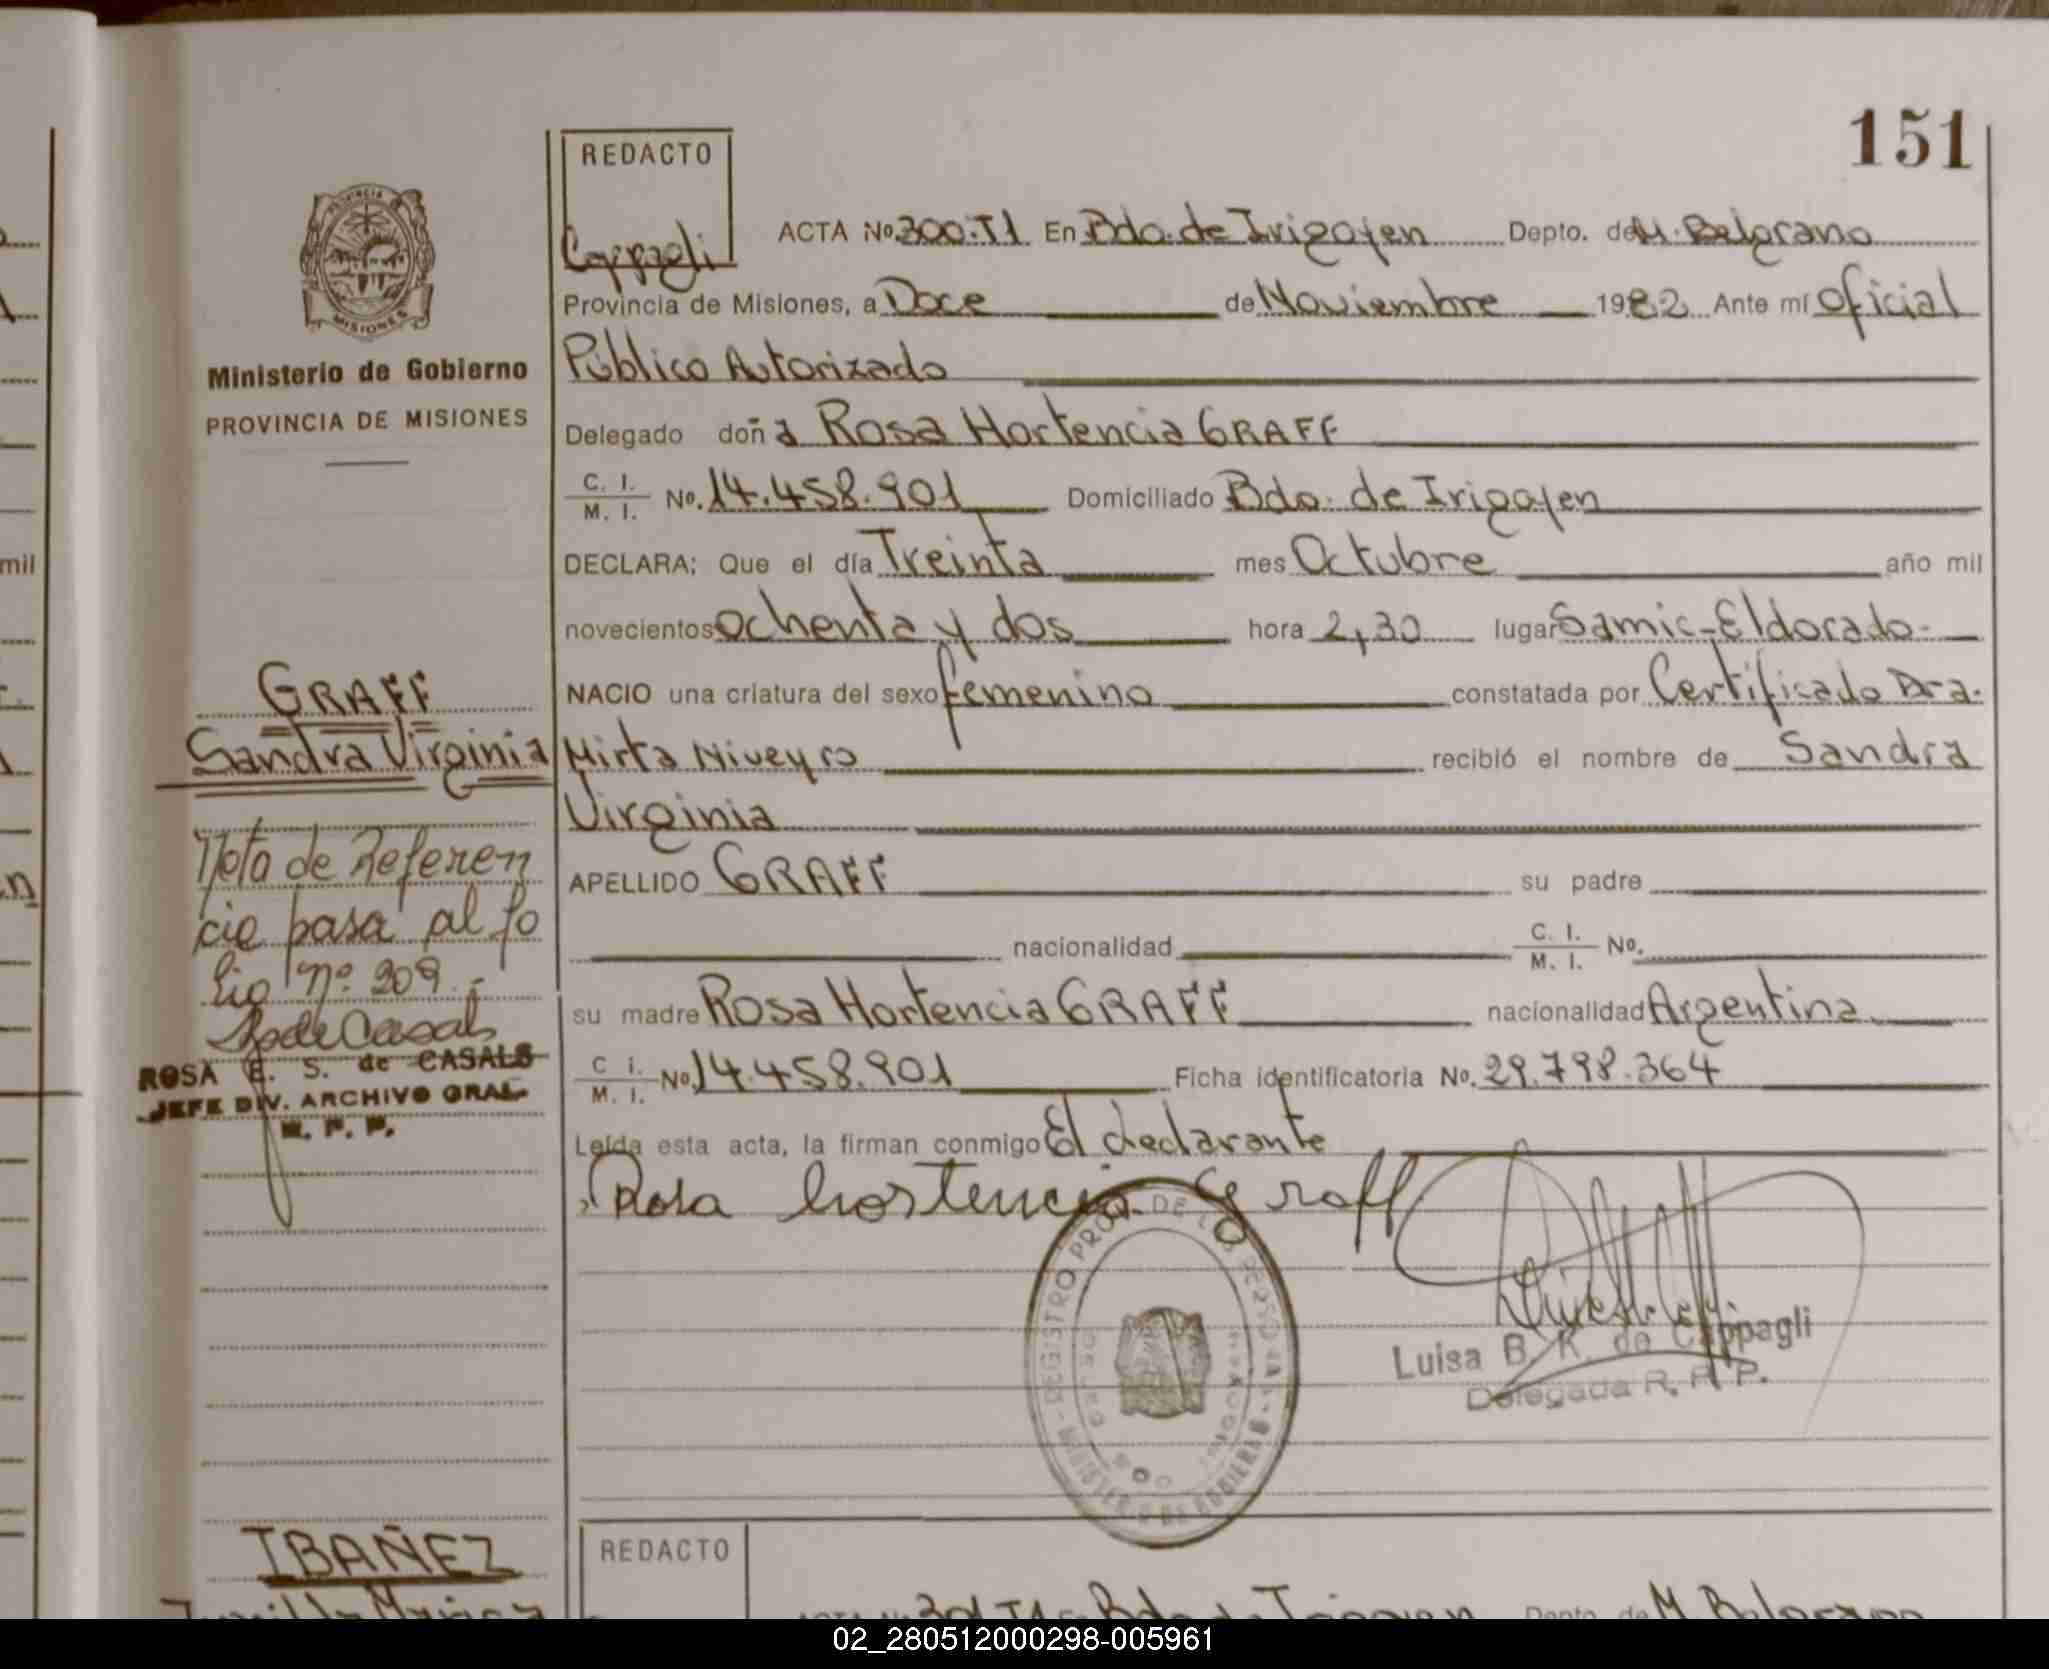 151
REDACTO
Cappagli
ACTA No. 300-T1 En Bdo. de Irigoyen Depto. de M. Belgrano
Provincia de Misiones, a Doce de Noviembre 1982 Ante mí Oficial
Público Autorizado
Delegado doña Rosa Hortencia GRAFF
C. I. / M. I. No. 14.458.901 Domiciliado Bdo. de Irigoyen
DECLARA; Que el día Treinta mes Octubre año mil
novecientos ochenta y dos hora 2,30 lugar Samic-Eldorado-
NACIO una criatura del sexo femenino constatada por Certificado Dra.
Mirta Niveyro recibió el nombre de Sandra
Virginia
APELLIDO GRAFF su padre
nacionalidad C. I. / M. I. No.
su madre Rosa Hortencia GRAFF nacionalidad Argentina
C. I. / M. I. No. 14.458.901 Ficha identificatoria No. 29.798.364
Leída esta acta, la firman conmigo El declarante
Rosa hortencia Graff
REGISTRO PROV. DE LAS PERSONAS - MINISTERIO DE GOBIERNO
Luisa B. K. de Cappagli
Delegada R. P. P.
PROVINCIA
MISIONES
Ministerio de Gobierno
PROVINCIA DE MISIONES
GRAFF
Sandra Virginia
Nota de Referen
cia pasa al fo
lio nº 209.-
ROSA E. S. de CASALS
JEFE DIV. ARCHIVO GRAL.
R. P. P.
mil
IBAÑEZ
REDACTO
ACTA No. 301 T1 En Bdo de Irigoyen Depto. de M. Belgrano
02_280512000298-005961